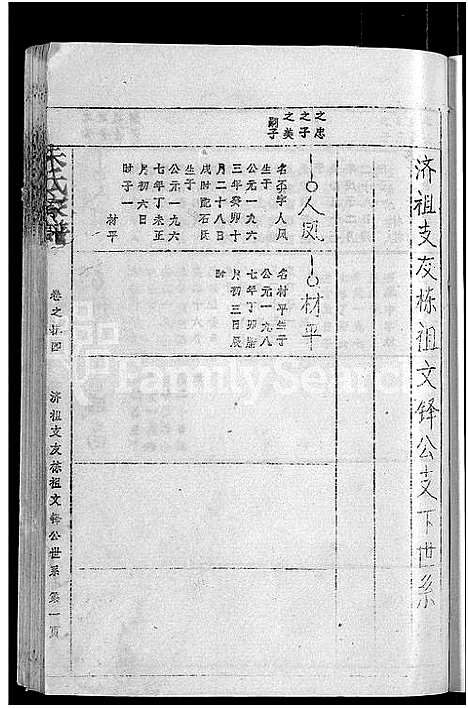 济祖支友栋祖文铎公支下世系
之忠
之子
之美
嗣子
人凤
名玉字人凤
生于
公元一九六
三年癸卯十
月二十八日
戌时配石氏
生于
公元一九六
七年丁未正
月初六日
时子一
材平
材平
名材平生于
公元一九八
七年丁卯
月初三日辰
时
朱氏家谱
卷之
济祖支友栋祖文铎公世系 第一页
FamilySearch